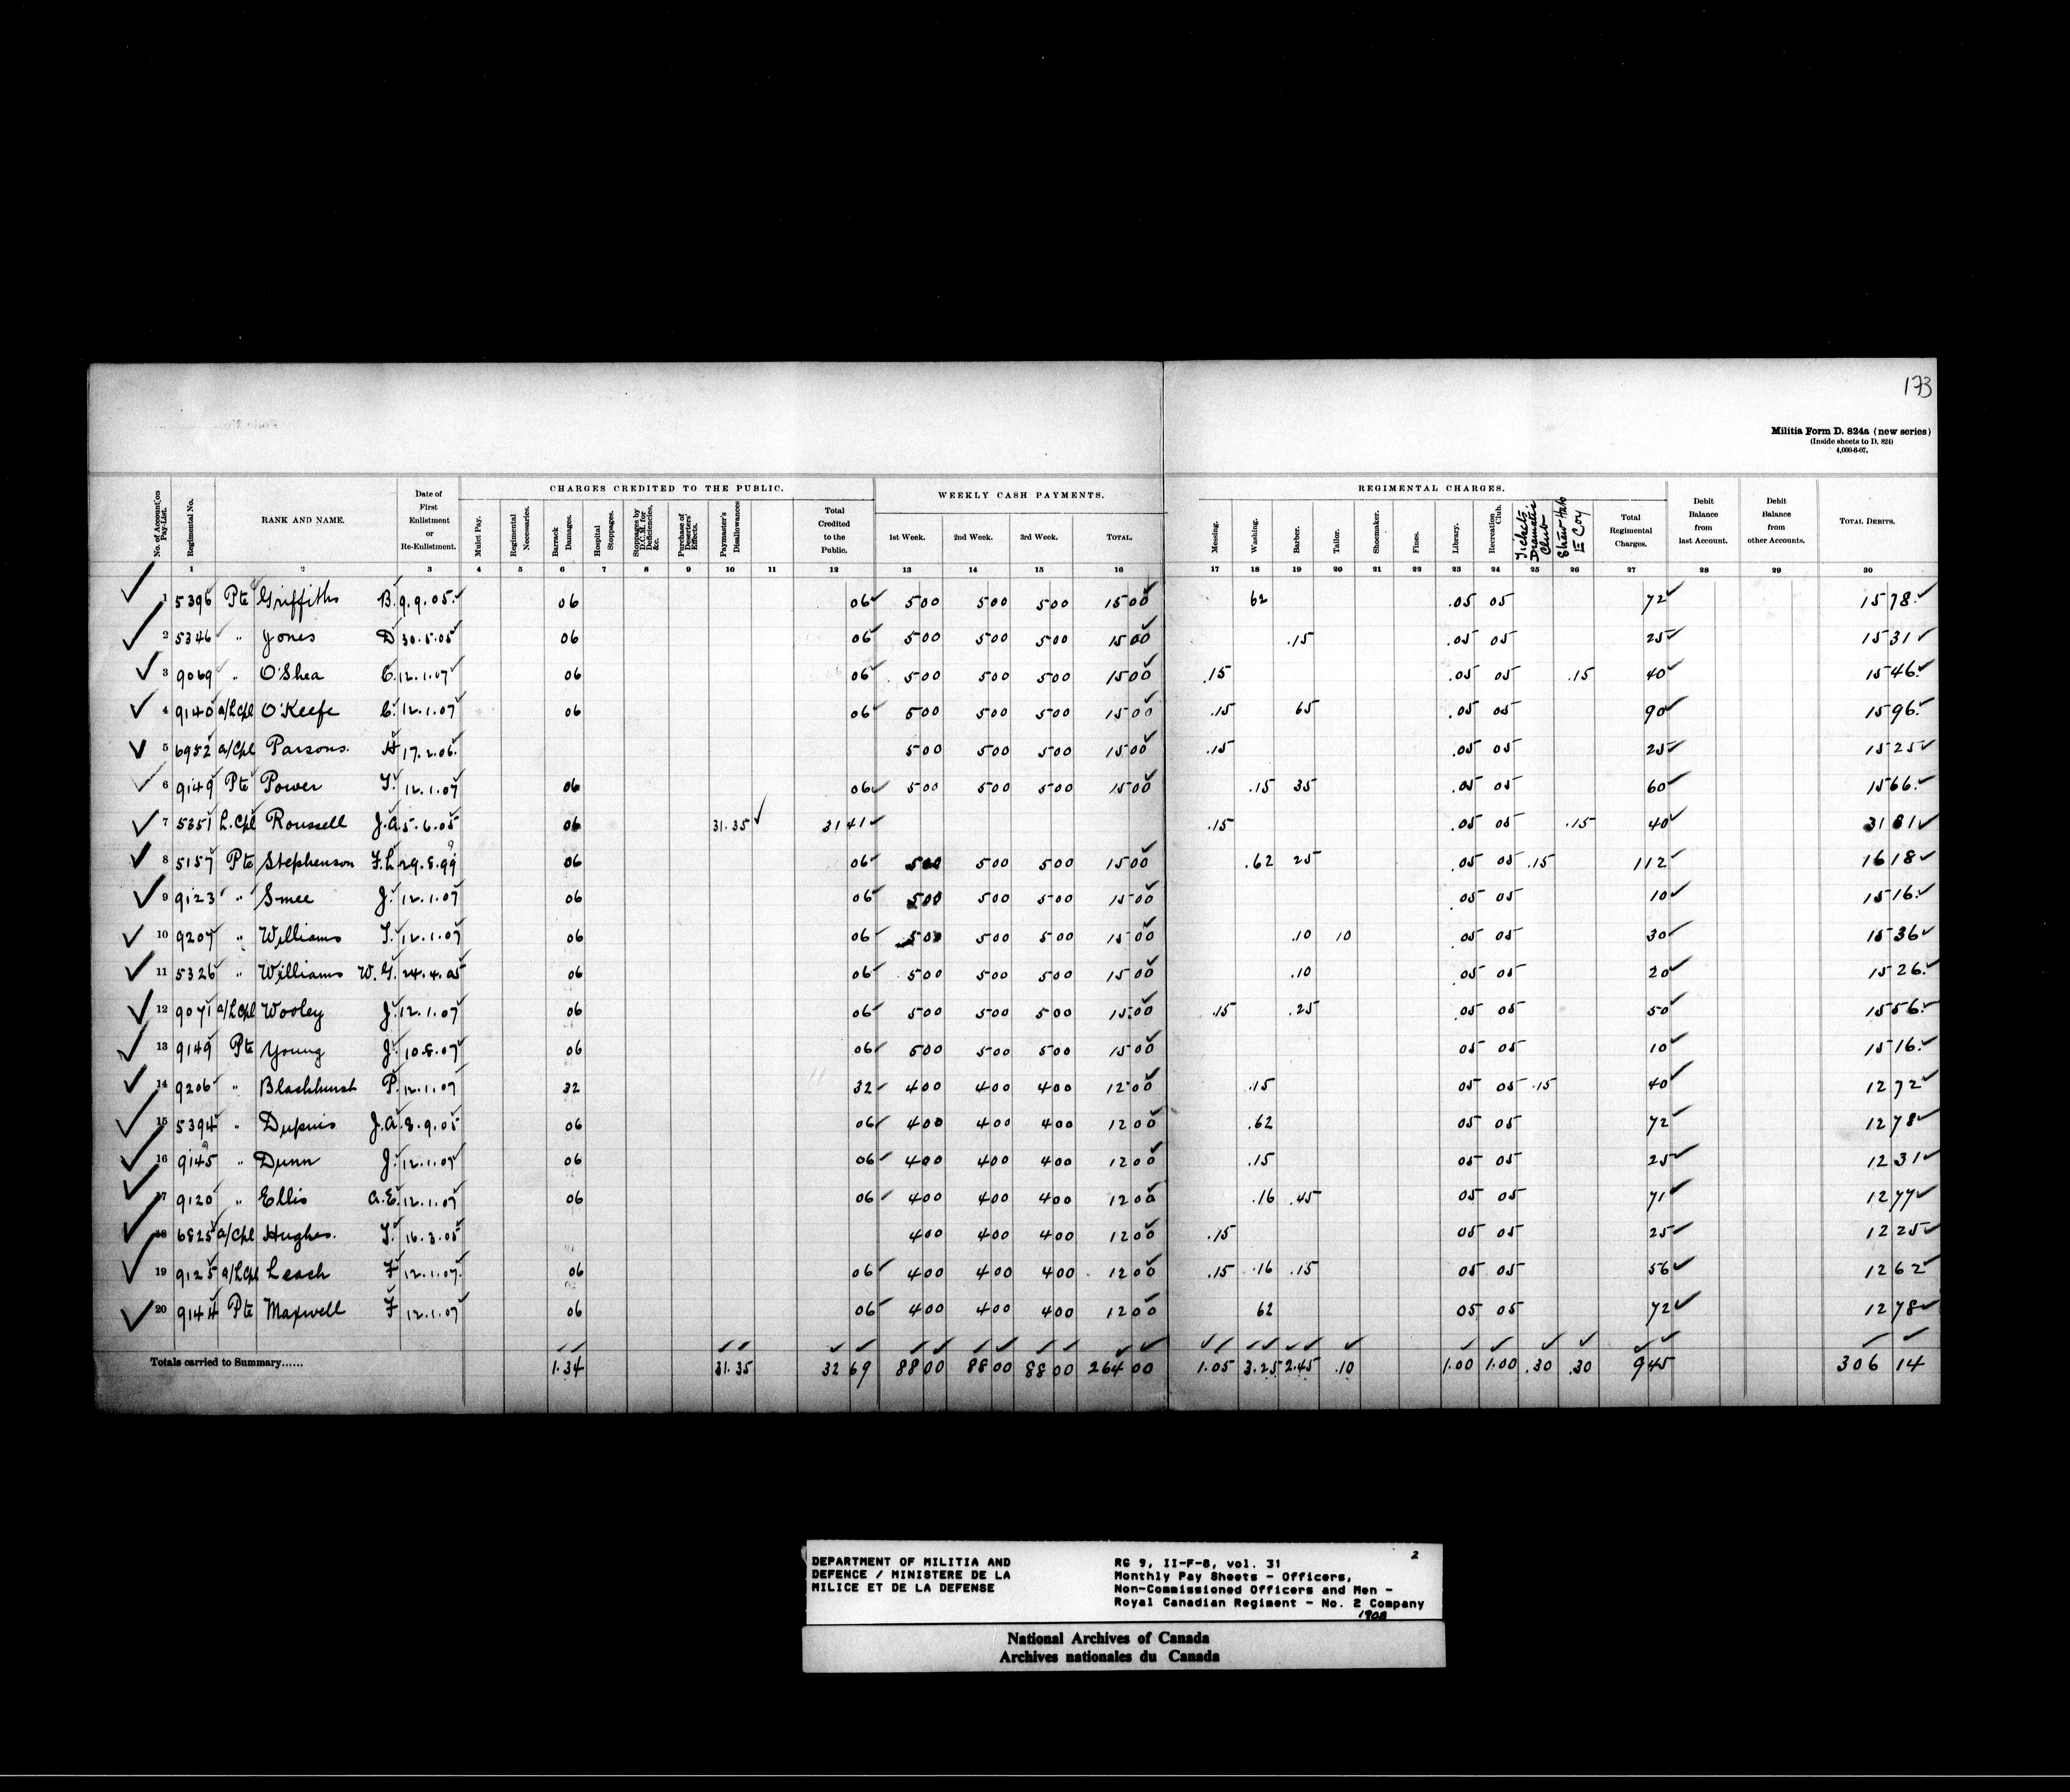 173
Militia Form D. 824a (new series)
(Inside sheets to D. 824)
4,000-6-07.
CHARGES CREDITED TO THE PUBLIC. WEEKLY CASH PAYMENTS. REGIMENTAL CHARGES.
No. of Account on Pay-List. Regimental No. RANK AND NAME. Date of First Enlistment or Re-Enlistment. Mulct Pay. Regimental Necessaries. Barrack Damages. Hospital Stoppages. Stoppages by D.C.M. for Deficiencies, &c. Purchase of Deserters' Effects. Paymaster's Disallowances Total Credited to the Public. 1st Week. 2nd Week. 3rd Week. TOTAL. Messing. Washing. Barber. Tailor. Shoemaker. Fines. Library. Recreation Club. Tickets Dramatic Club Straw Hats E Coy Total Regimental Charges. Debit Balance from last Account. Debit Balance from other Accounts. TOTAL DEBITS.
1 2 3 4 5 6 7 8 9 10 11 12 13 14 15 16 17 18 19 20 21 22 23 24 25 26 27 28 29 30
1 5396 Pte Griffiths B. 9.9.05. 06 06 500 500 500 1500 62 .05 05 72 1578.
2 5346 " Jones D 30.5.05 06 06 500 500 500 1500 .15 .05 05 25 1531
3 9069 " O'Shea C. 12.1.07 06 06 500 500 500 1500 .15 .05 05 .15 40 1546.
4 9140 a/L Cpl O'Keefe C. 12.1.07 06 06 500 500 500 1500 .15 65 .05 05 90 1596.
5 6952 a/Cpl Parsons. H 17.2.06. 500 500 500 1500 .15 .05 05 25 1525
6 9149 Pte Power T. 12.1.07 06 06 500 500 500 1500 .15 35 .05 05 60 1566.
7 5351 L. Cpl Roussell J.A 5.6.05 06 31.35 3141 .15 .05 05 .15 40 3181
8 5157 Pte Stephenson F.L 29.8.99 06 06 500 500 500 1500 .62 25 .05 05 .15 112 1618
9 9123 " Smee J. 12.1.07 06 06 500 500 500 1500 .05 05 10 1516.
10 9207 " Williams T. 12.1.07 06 06 500 500 500 1500 .10 10 .05 05 30 1536
11 5326 " Williams W.G. 24.4.05 06 06 500 500 500 1500 .10 .05 05 20 1526.
12 9071 a/L Cpl Wooley J. 12.1.07 06 06 500 500 500 1500 .15 .25 05 05 50 1556.
13 9149 Pte Young J. 10.8.07 06 06 500 500 500 1500 05 05 10 1516.
14 9206 " Blackhurst P. 12.1.07 32 32 400 400 400 1200 .15 05 05 .15 40 1272
15 5394 " Dupuis J.A. 8.9.05 06 06 400 400 400 1200 .62 05 05 72 1278
16 9145 " Dunn J. 12.1.07 06 06 400 400 400 1200 .15 05 05 25 1231
17 9120 " Ellis A.E. 12.1.07 06 06 400 400 400 1200 .16 .45 05 05 71 1277
18 6825 a/Cpl Hughes. T. 16.3.05 400 400 400 1200 .15 05 05 25 1225
19 9125 a/L Cpl Leach F 12.1.07. 06 06 400 400 400 1200 .15 .16 .15 05 05 56 1262
20 9144 Pte Maxwell F 12.1.07 06 06 400 400 400 1200 62 05 05 72 1278
Totals carried to Summary...... 1.34 31.35 32 69 8800 8800 8800 264 00 1.05 3.25 2.45 .10 1.00 1.00 .30 .30 945 306 14
2
DEPARTMENT OF MILITIA AND
DEFENCE / MINISTERE DE LA
MILICE ET DE LA DEFENSE
RG 9, II-F-8, vol. 31
Monthly Pay Sheets - Officers,
Non-Commissioned Officers and Men -
Royal Canadian Regiment - No. 2 Company
1908
National Archives of Canada
Archives nationales du Canada